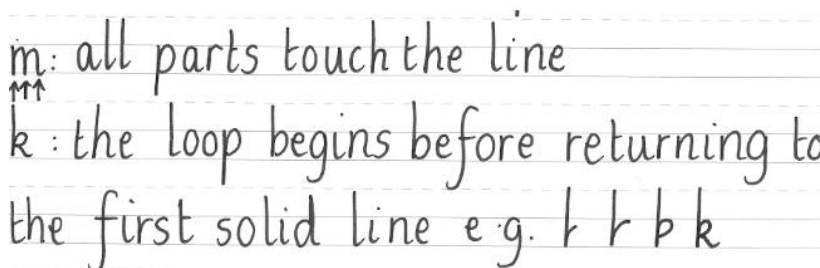 m: all parts touch the line
k: the loop begins before returning to
the first solid line e.g. k